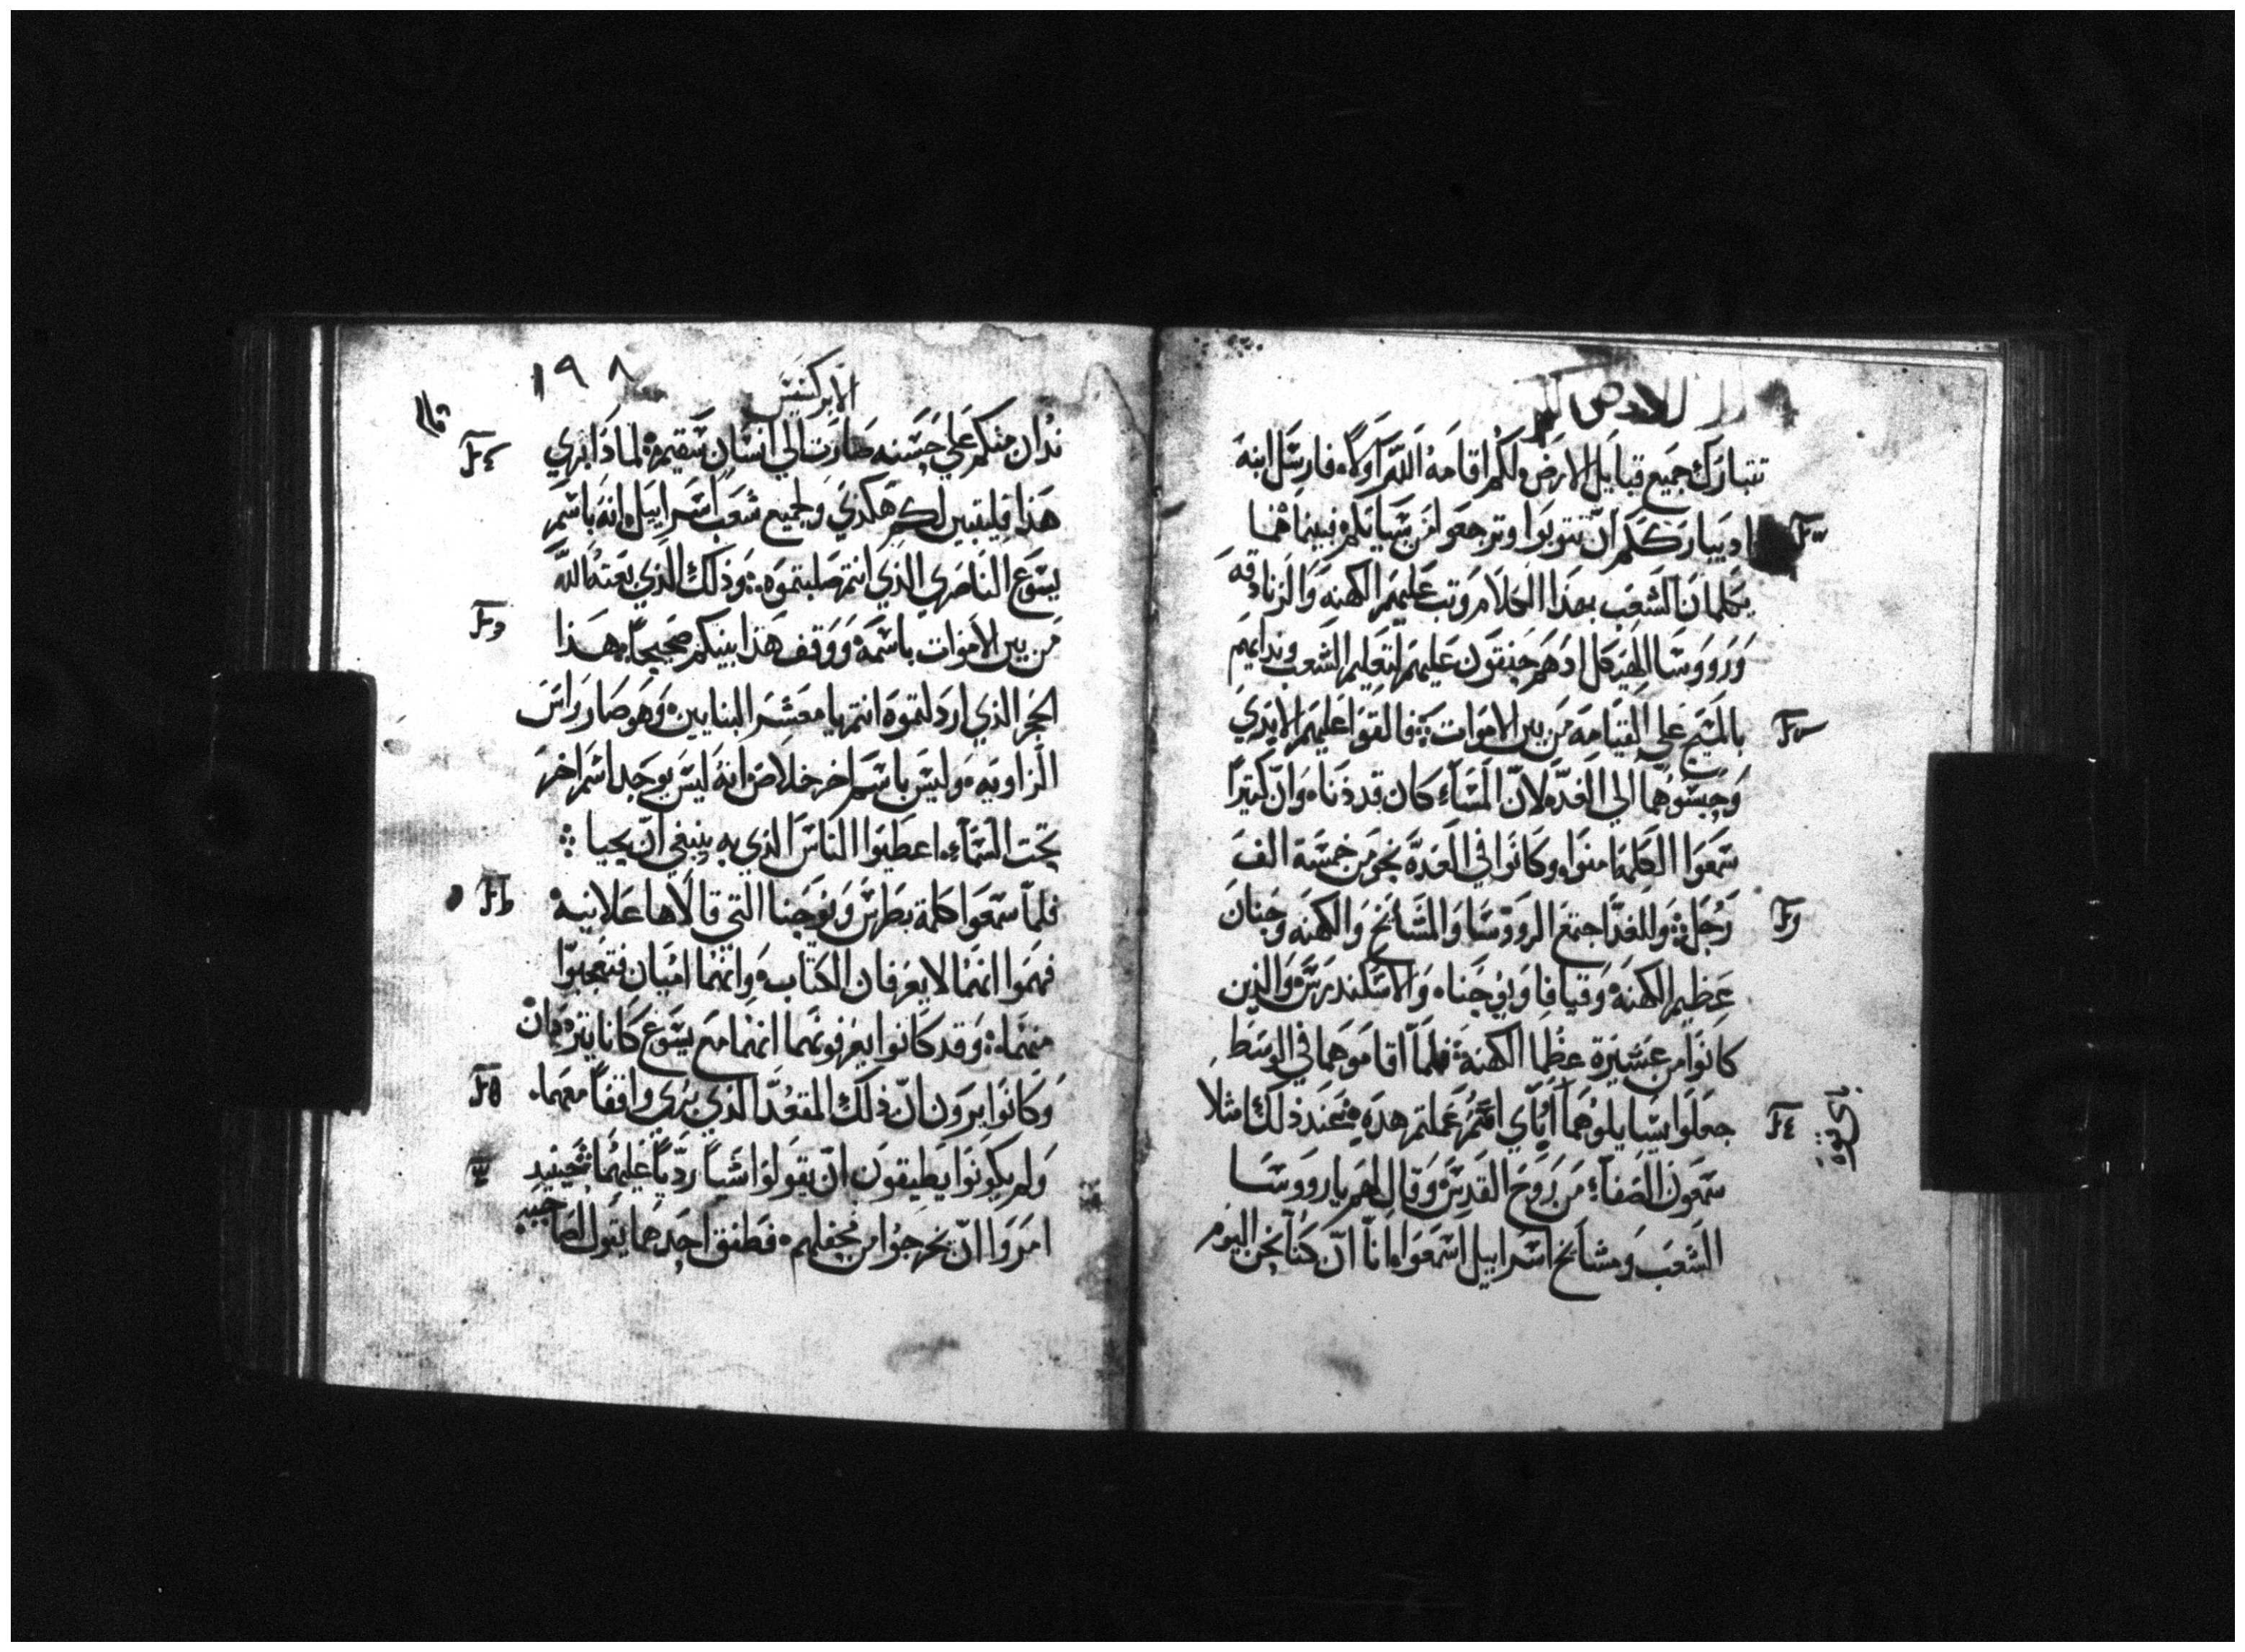 تتبارك جميع قبايل الارض ولكم اقامه الله اولاه فارسل ابنه
اذ يباركم ان تتوبوا وترجعوا من سياتكم فبينما هما
يكلمان الشعب بهذا الكلام وثب عليهم الكهنه والزنادقه
ورووسا الهيكل اذ هم حنقون عليهم لتعليم الشعب وندايهم
بالمسيح علي القيامه من بين الاموات فالقوا عليهم الايدي
وحبسوهما الي الغد لان المساء كان قد دنا وان كثيرا
سمعوا الكلمه امنوا وكانوا في العده نحو من خمسة الف
رجل وللغد اجتمع الرووسا والمشايخ والكهنه وحنان
عظيم الكهنه وقيافا ويوحنا والاسكندرس والذين
كانوا من عشيرة عظما الكهنه فلما اقاموهما في الوسط
جعلوا يسايلوهما اباي اسم عملتم هذه فعند ذلك امتلا
باي قوه
سمعون الصفاء من روح القدس وقال لهم يا رووسا
الشعب ومشايخ اسراييل اسمعوا انا ان كنا نحن اليوم
١٩٨
الابركسيس
ندان منكم علي حسنه صارت الي انسان سقيم لماذا بري
هذا فليتبين لكم هكذي ولجميع شعب اسراييل انه باسم
يسوع الناصري الذي انتم صلبتموه وذلك الذي بعثه الله
من بين الاموات باسمه ووقف هذا بينكم صحيحا هذا
الحجر الذي ارذلتموه انتم يا معشر البنايين وهو صار راس
الزاويه وليس باسم اخر خلاص انه ليس يوجد اسم اخر
تحت السماء اعطيوا الناس الذي به ينبغي ان يحيا
فلما سمعوا كلمة بطرس ويوحنا التي قالاها علانيه
فهموا انهما لا يعرفان الكتاب وانهما اميان فتعجبوا
منهما وقد كانوا يعرفونهما انهما مع يسوع كانا يترددان
وكانوا يرون ان ذلك المقعد الذي بري واقفا معهما
ولم يكونوا يطيقون ان يقولوا شيا رديا عليهما فحينيذ
امروا ان يخرجوا من محفلهم فطفق احدهما يقول لصاحبه